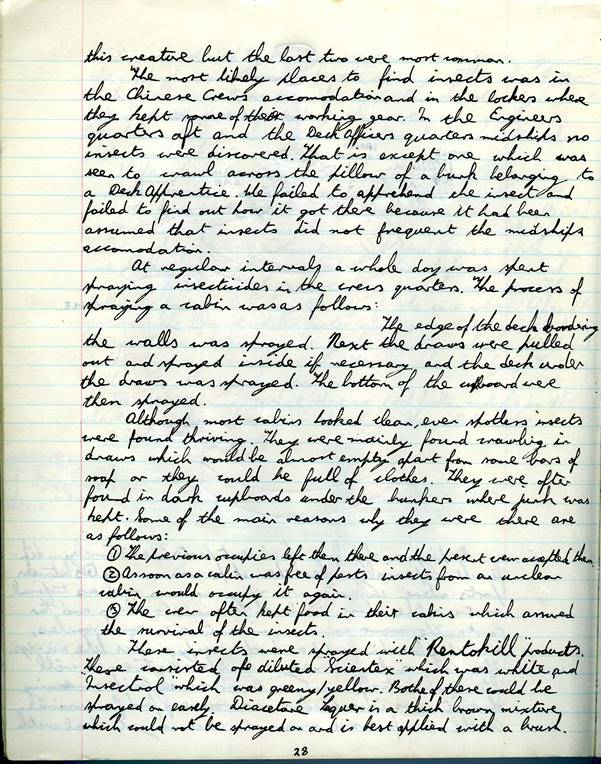 this creature but the last two were most common.
The most likely places to find insects was in
the Chinese Crews accomodation and in the lockers where
they kept some of their working gear. In the Engineers
quarters aft and the Deck Officers quarters midships no
insects were discovered. That is except one which was
seen to crawl across the pillow of a bunk belonging to
a Deck Apprentice. We failed to apprehend the insect and
failed to find out how it got there because it had been
assumed that insects did not frequent the midships
accomodation.
At regular intervals a whole day was spent
spraying insecticides in the crews quarters. The process of
spraying a cabin was as follows:
The edge of the deck bordering
the walls was sprayed. Next the draws were pulled
out and sprayed inside if necessary and the deck under
the draws was sprayed. The bottom of the cupboard were
then sprayed.
Although most cabins looked clean, even spotless insects
were found thriving. They were mainly found crawling in
draws which would be almost empty apart from some bars of
soap or they could be full of clothes. They were often
found in dark cupboards under the bunkers where junk was
kept. Some of the main reasons why they were there are
as follows:
① The previous occupies left them there and the present crew accepted them
② As soon as a cabin was free of pests insects from an unclean
cabin would occupy it again.
③ The crew often kept food in their cabins which assured
the survival of the insects.
These insects were sprayed with "Rentokill" products.
These consisted of diluted "Scientex" which was white and
"Insectrol" which was greeny/yellow. Both of these could be
sprayed on easily. Diacetine is a thick brown mixture
which could not be sprayed on and is best applied with a brush.
28